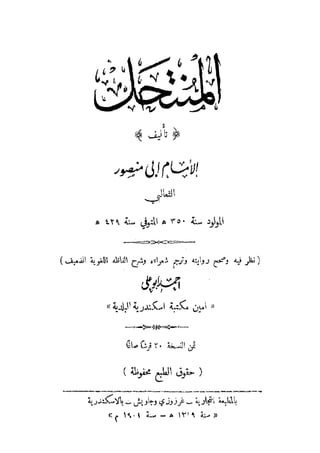 المنتحل
تأليف
الإمام ابي منصور
الثعالبي
المولود سنة ٣٥٠ ه المتوفي سنة ٤٢٩ ه
( نظر فيه وصحح روايته وترجم شعراءه وشرح الفاظه اللغوية الضعيف )
احمد ابو علي
« امين مكتبة اسكندرية البلدية »
ثمن النسخة ٢٠ قرشًا صاغًا
( حقوق الطبع محفوظة )
بالمطبعة التجارية – غرزوزي وجاويش – بالاسكندرية
« سنة ١٣١٩ ه – سنة ١٩٠١ م »